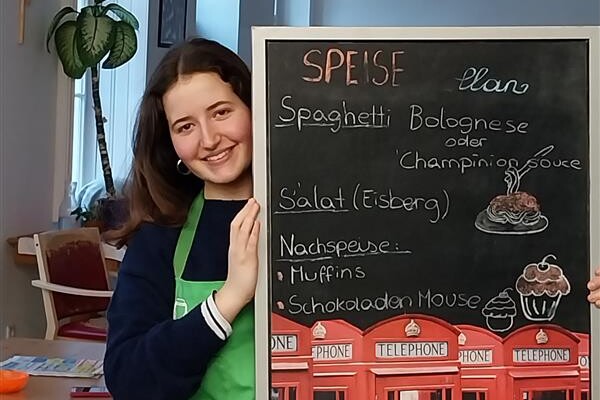 SPEISE plan
Spaghetti Bolognese
oder
Champinion souce
Salat (Eisberg)
Nachspeise:
• Muffins
• Schokoladen Mouse
ONE TELEPHONE TELEPHONE TELEPHONE TELEPHONE